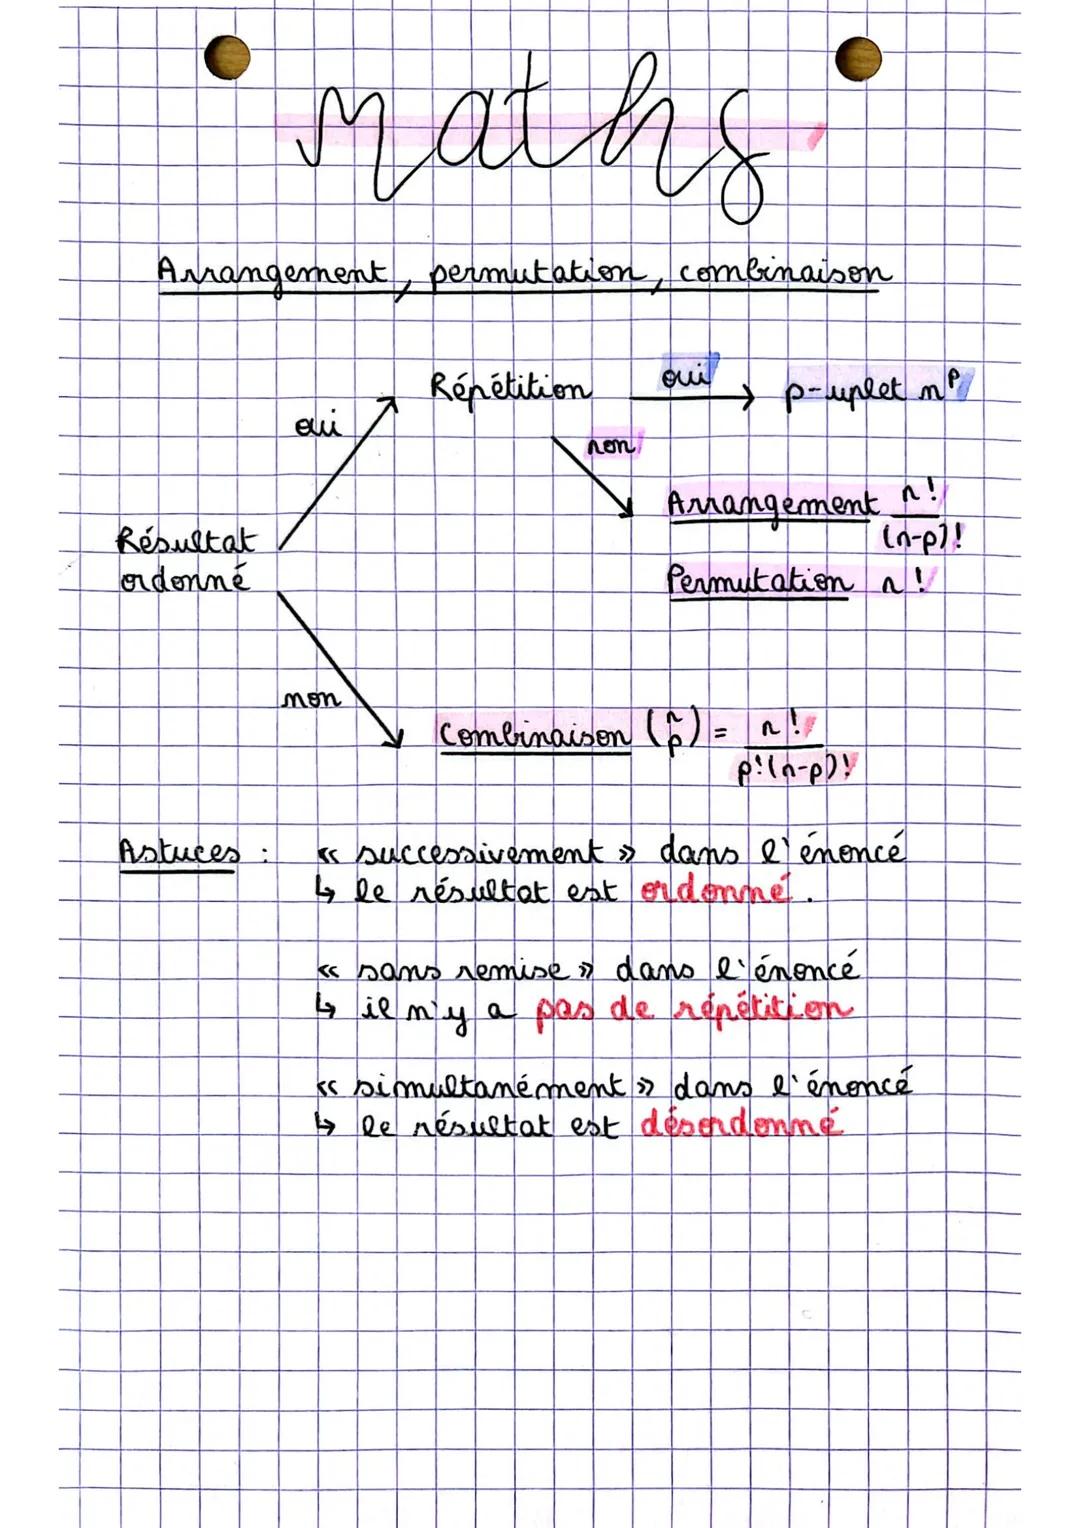 Maths
Arrangement, permutation, combinaison
Répétition oui p-uplet n^p
oui
non
Arrangement n!/(n-p)!
Résultat
ordonné
Permutation n!
non
Combinaison (n p) = n!/p!(n-p)!
Astuces : « successivement » dans l'énoncé
↳ le résultat est ordonné.
« sans remise » dans l'énoncé
↳ il n'y a pas de répétition
« simultanément » dans l'énoncé
↳ le résultat est désordonné